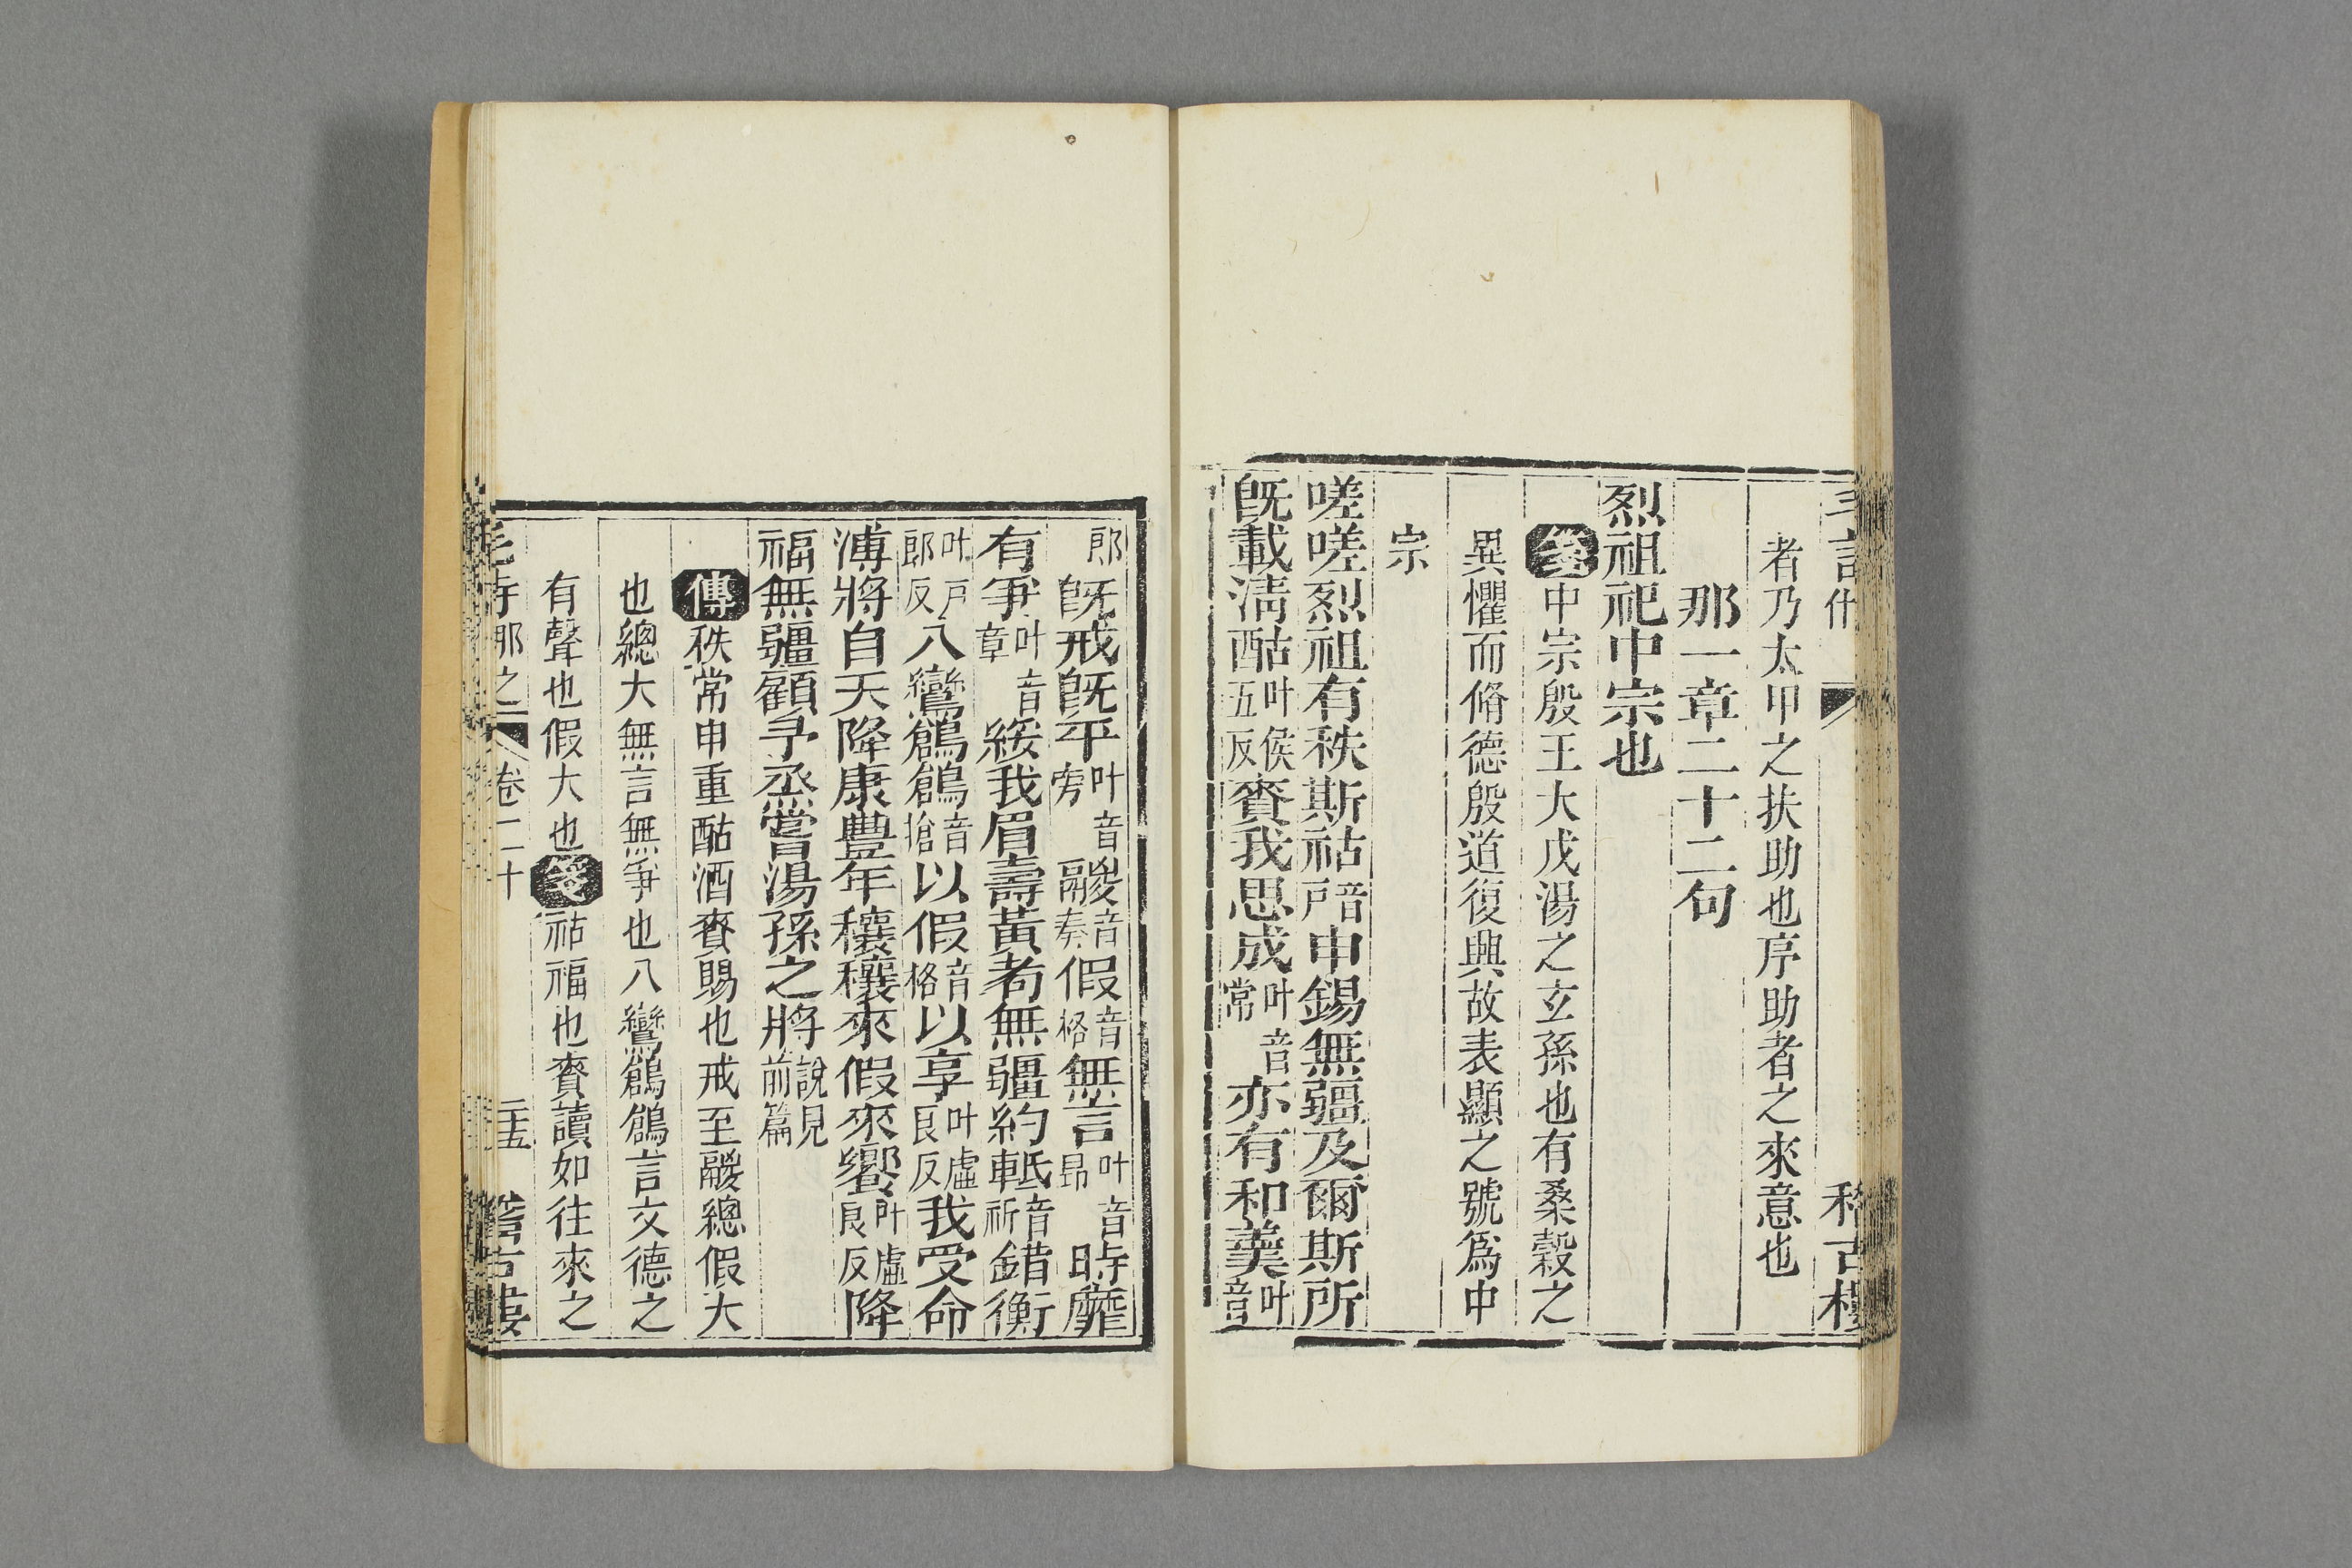 者乃太甲之扶助也序助者之來意也
那一章二十二句
烈祖祀中宗也
箋中宗殷王大戊湯之玄孫也有桑穀之
異懼而脩德殷道復興故表顯之號爲中
宗
嗟嗟烈祖有秩斯祜音戸申錫無疆及爾斯所
旣載淸酤叶侯五反賚我思成叶音常亦有和羹叶音
郎旣戒旣平叶音旁鬷音奏假音格無言叶音昻時靡
有爭叶音章綏我眉壽黃耇無疆約軧音祈錯衡
叶戸郎反八鸞鶬鶬音搶以假音格以享叶虛良反我受命
溥將自天降康豐年穰穰來假來饗叶虛良反降
福無疆顧予烝嘗湯孫之將說見前篇
傳秩常申重酤酒賚賜也戒至鬷總假大
也總大無言無爭也八鸞鶬鶬言文德之
有聲也假大也箋祜福也賚讀如往來之
毛詩 那之 卷二十 二十五 稽古樓